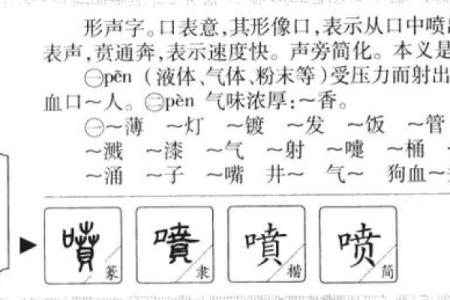 形声字。口表意,其形像口,表示从口中喷
表声,贲通奔,表示速度快。声旁简化。本义是
㊀pēn（液体、气体、粉末等）受压力而射出
血口~人。㊁pèn 气味浓厚:~香。
㊀~薄 ~灯 ~镀 ~发 ~饭 ~管
~溅 ~漆 ~气 ~射 ~嚏 ~桶
~涌 ~子 ~嘴 井~ 气~ 狗血~
噴 篆 噴 隶 噴 楷 喷 简